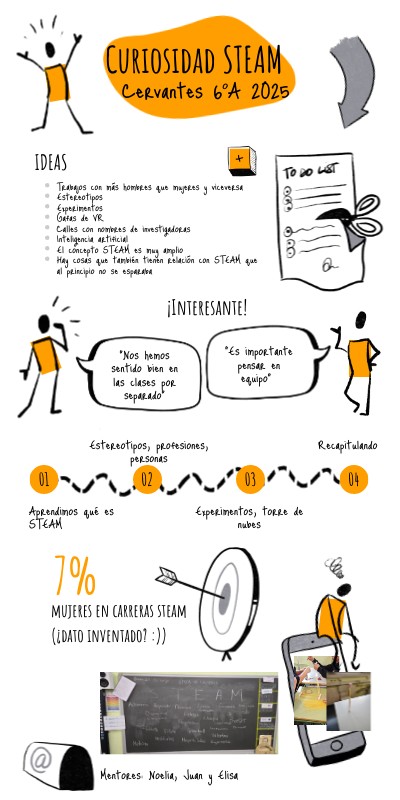 CURIOSIDAD STEAM
Cervantes 6ºA 2025
IDEAS
+
TO DO LIST
Trabajos con más hombres que mujeres y viceversa
Estereotipos
Experimentos
Gafas de VR
Calles con nombres de investigadoras
Inteligencia artificial
El concepto STEAM es muy amplio
Hay cosas que también tienen relación con STEAM que
al principio no se esperaba
¡INTERESANTE!
"Nos hemos
sentido bien en
las clases por
separado"
"Es importante
pensar en
equipo"
Estereotipos, profesiones,
personas
Recapitulando
01
02
03
04
Aprendimos qué es
STEAM
Experimentos, torre de
nubes
7%
MUJERES EN CARRERAS STEAM
(¿DATO INVENTADO? :))
STEAM
@
Mentores: Noelia, Juan y Elisa